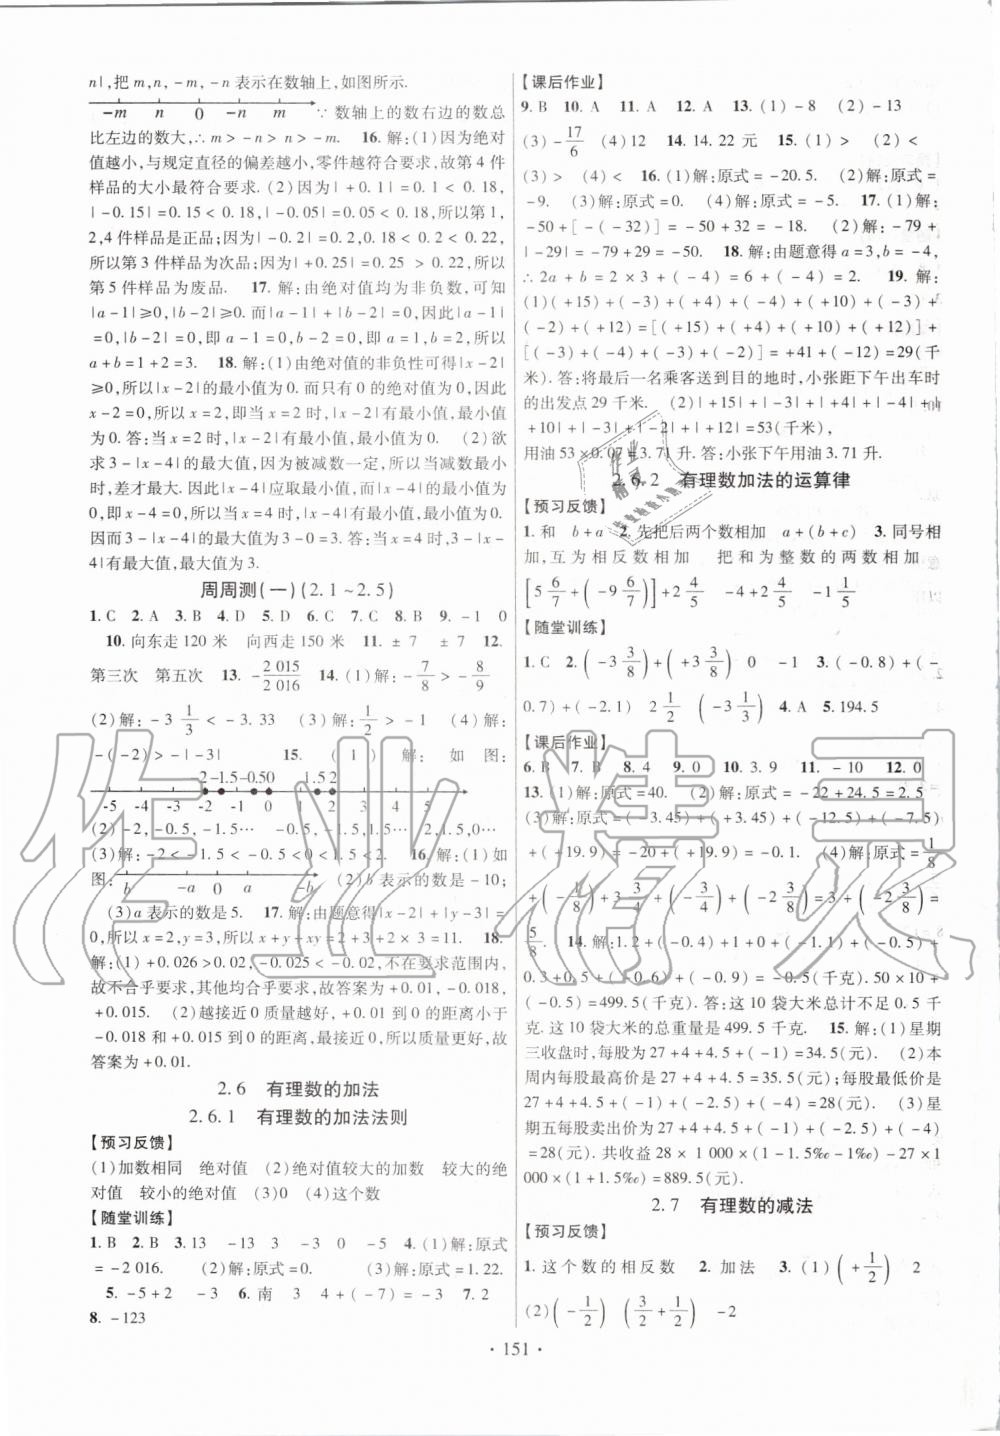 n|,把 m,n,-m,-n 表示在数轴上,如图所示.
-m n 0 -n m ∵ 数轴上的数右边的数总
比左边的数大,∴ m>-n>n>-m. 16. 解:(1)因为绝对
值越小,与规定直径的偏差越小,零件越符合要求,故第 4 件
样品的大小最符合要求.(2)因为|+0.1|=0.1<0.18,
|-0.15|=0.15<0.18,|-0.05|=0.05<0.18,所以第 1,
2,4 件样品是正品;因为|-0.2|=0.2,0.18<0.2<0.22,
所以第 3 件样品为次品;因为|+0.25|=0.25>0.22,所以
第 5 件样品为废品. 17. 解:由绝对值均为非负数,可知
|a-1|≥0,|b-2|≥0. 而|a-1|+|b-2|=0,因此|a-1|
=0,|b-2|=0,即 a-1=0,b-2=0,即 a=1,b=2,所以
a+b=1+2=3. 18. 解:(1)由绝对值的非负性可得|x-2|
≥0,所以|x-2|的最小值为 0. 而只有 0 的绝对值为 0,因此
x-2=0,所以 x=2,即当 x=2 时,|x-2|有最小值,最小值
为 0. 答:当 x=2 时,|x-2|有最小值,最小值为 0. (2)欲
求 3-|x-4|的最大值,因为被减数一定,所以当减数最小
时,差才最大. 因此|x-4|应取最小值,而|x-4|的最小值是 0,
此时,x-4=0,所以 x=4,即当 x=4 时,|x-4|的最小值为 0.
因而 3-|x-4|的最大值为 3-0=3. 答:当 x=4 时,3-|x-4|
有最大值,最大值为 3.
周周测(一)(2.1~2.5)
1. C 2. A 3. B 4. D 5. D 6. C 7. C 8. B 9. -1 0
10. 向东走 120 米 向西走 150 米 11. ±7 ±7 12.
第三次 第五次 13. -2 015/2 016 14. (1)解:-7/8>-8/9
(2)解:-3 1/3<-3.33 (3)解:1/2>-1 (4)解:
-(-2)>-|-3| 15. (1) 解: 如图:
-2 -1.5 -0.5 0 1.5 2
-5 -4 -3 -2 -1 0 1 2 3 4 5
(2)-2,-0.5,-1.5… -0.5,-1.5,1.5… 2,1.5,0…
(3)-2<-1.5<-0.5<0<1.5<2. 16. 解:(1)如
图: b -a 0 a -b (2)b 表示的数是-10;
(3)a 表示的数是 5. 17. 解:由题意得|x-2|+|y-3|=
0,所以 x=2,y=3,所以 x+y+xy=2+3+2×3=11. 18.
解:(1)+0.026>0.02,-0.025<-0.02 不在要求范围内,
故不合乎要求,其他均合乎要求,故答案为+0.01,-0.018,
+0.015. (2)越接近 0 质量越好,+0.01 到 0 的距离小于
-0.018 和+0.015 到 0 的距离,最接近 0,所以质量更好,故
答案为+0.01.
2.6 有理数的加法
2.6.1 有理数的加法法则
【预习反馈】
(1)加数相同 绝对值 (2)绝对值较大的加数 较大的绝
对值 较小的绝对值 (3)0 (4)这个数
【随堂训练】
1. B 2. B 3. 13 -13 3 -3 0 -3 4. (1)解:原式
=-2 016. (2)解:原式=0. (3)解:原式=1.22.
5. -5+2 -3 6. 南 3 4+(-7)=-3 7. 2
8. -123
【课后作业】
9. B 10. A 11. A 12. A 13. (1)-8 (2)-13
(3)-17/6 (4)12 14. 14.22 元 15. (1)> (2)<
(3)> (4)< 16. (1)解:原式=-20.5. (2)解:原式=
-9. (3)解:原式=0. (4)解:原式=-5. 17. (1)解:
-50+[-(-32)]=-50+32=-18. (2)解:-79+
|-29|=-79+29=-50. 18. 解:由题意得 a=3,b=-4,
∴2a+b=2×3+(-4)=6+(-4)=2. 19. 解:
(1)(+15)+(-3)+(+4)+(-4)+(+10)+(-3)+
(-2)+(+12)=[(+15)+(+4)+(+10)+(+12)]+
[(-3)+(-4)+(-3)+(-2)]=+41+(-12)=29(千
米). 答:将最后一名乘客送到目的地时,小张距下午出车时
的出发点 29 千米. (2)|+15|+|-3|+|+4|+|-4|+
|+10|+|-3|+|-2|+|+12|=53(千米),
用油 53×0.07=3.71 升. 答:小张下午用油 3.71 升.
2.6.2 有理数加法的运算律
【预习反馈】
1. 和 b+a 2. 先把后两个数相加 a+(b+c) 3. 同号相
加,互为相反数相加 把和为整数的两数相加
[5 6/7+(-9 6/7)]+2 4/5 (-4)+2 4/5 -1 1/5
【随堂训练】
1. C 2. (-3 3/8)+(+3 3/8) 0 -1 3. (-0.8)+(-
0.7)+(-2.1) 2 1/2 (-3 1/3) 4. A 5. 194.5
【课后作业】
6. B 7. B 8. 4 9. 0 10. 3.9 11. -10 12. 0
13. (1)解:原式=40. (2)解:原式=-22+24.5=2.5
(3)解:原式=(-3.45)+(+3.45)+(-12.5)+(-7.5)
+(+19.9)=-20+(+19.9)=-0.1. (4)解:原式=1/8
5/8. 14. 解:1.2+(-0.4)+1+0+(-1.1)+(-0.5)+
0.3+0.5+(+0.6)+(-0.9)=-0.5(千克). 50×10+
(-0.5)=499.5(千克). 答:这 10 袋大米总计不足 0.5 千
克. 这 10 袋大米的总重量是 499.5 千克. 15. 解:(1)星期
三收盘时,每股为 27+4+4.5+(-1)=34.5(元). (2)本
周内每股最高价是 27+4+4.5=35.5(元);每股最低价是
27+4+4.5+(-1)+(-2.5)+(-4)=28(元). (3)星
期五每股卖出价为 27+4+4.5+(-1)+(-2.5)+(-4)
=28(元). 共收益 28×1 000×(1-1.5‰-1‰)-27×1
000×(1+1.5‰)=889.5(元).
2.7 有理数的减法
【预习反馈】
1. 这个数的相反数 2. 加法 3. (1)(+1/2) 2
(2)(-1/2) (3/2+1/2) -2
· 151 ·